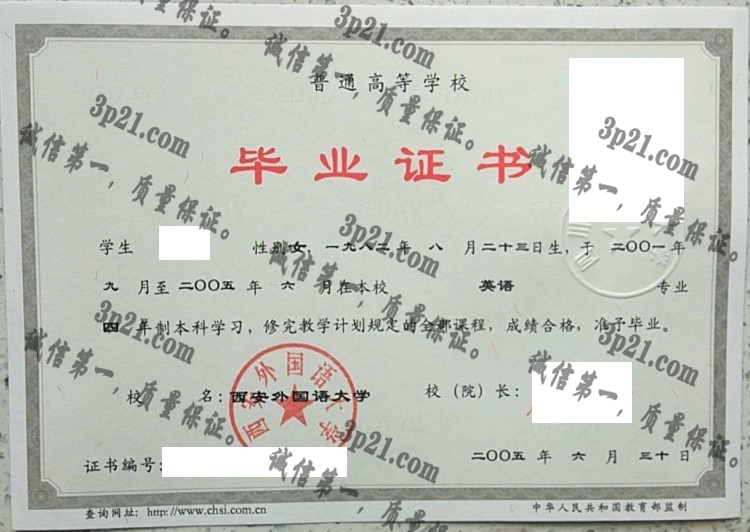 普通高等学校
毕业证书
学生 性别女，一九八二年 八 月二十三日生，于 二〇〇一年
九 月至 二〇〇五 年 六 月在本校 英语 专业
四 年制本科学习，修完教学计划规定的全部课程，成绩合格，准予毕业。
校 名：西安外国语大学 校（院）长：
西安外国语大学
证书编号： 二〇〇五 年 六 月 三十日
查询网址：http://www.chsi.com.cn 中华人民共和国教育部监制
3p21.com
诚信第一，质量保证。
3p21.com
诚信第一，质量保证。
3p21.com
诚信第一，质量保证。
3p21.com
诚信第一，质量保证。
3p21.com
诚信第一，质量保证。
3p21.com
诚信第一，质量保证。
3p21.com
诚信第一，质量保证。